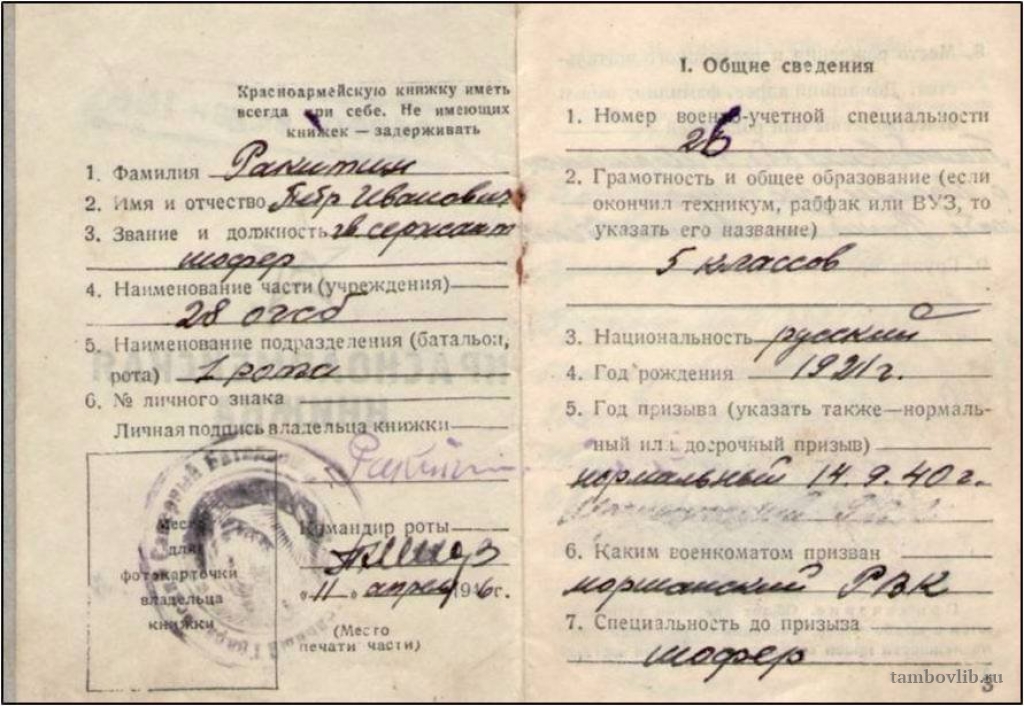 Красноармейскую книжку иметь
всегда при себе. Не имеющих
книжек — задерживать
1. Фамилия Ракитин
2. Имя и отчество Пётр Иванович
3. Звание и должность гв сержант
шофер
4. Наименование части (учреждения)
28 огсб
5. Наименование подразделения (батальон,
рота) 1 рота
6. № личного знака
Личная подпись владельца книжки
Ракитин
Место
для
фотокарточки
владельца
книжки
Командир роты
„11„ апреля 1946г.
(Место
печати части)
I. Общие сведения
1. Номер военно-учетной специальности
26
2. Грамотность и общее образование (если
окончил техникум, рабфак или ВУЗ, то
указать его название)
5 классов
3. Национальность русский
4. Год рождения 1921г.
5. Год призыва (указать также—нормаль-
ный или досрочный призыв)
нормальный 14.9.40 г.
6. Каким военкоматом призван
моршанский РВК
7. Специальность до призыва
шофер
3
tambovlib.ru